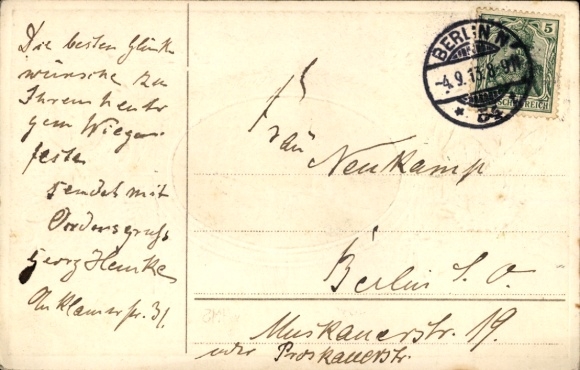 Die besten Glück
wünsche zu
Ihrem heuti
gem Wiegen
feste
sendet mit
Ordensgruß
Georg Henkes
Anklamerstr. 31.
BERLIN N
-4.9.13.8-9N
* 54 *
5
DEUTSCHES REICH
Frau
Neukamp
Berlin S. O.
Muskauerstr. 19.
oder Proskauerstr.